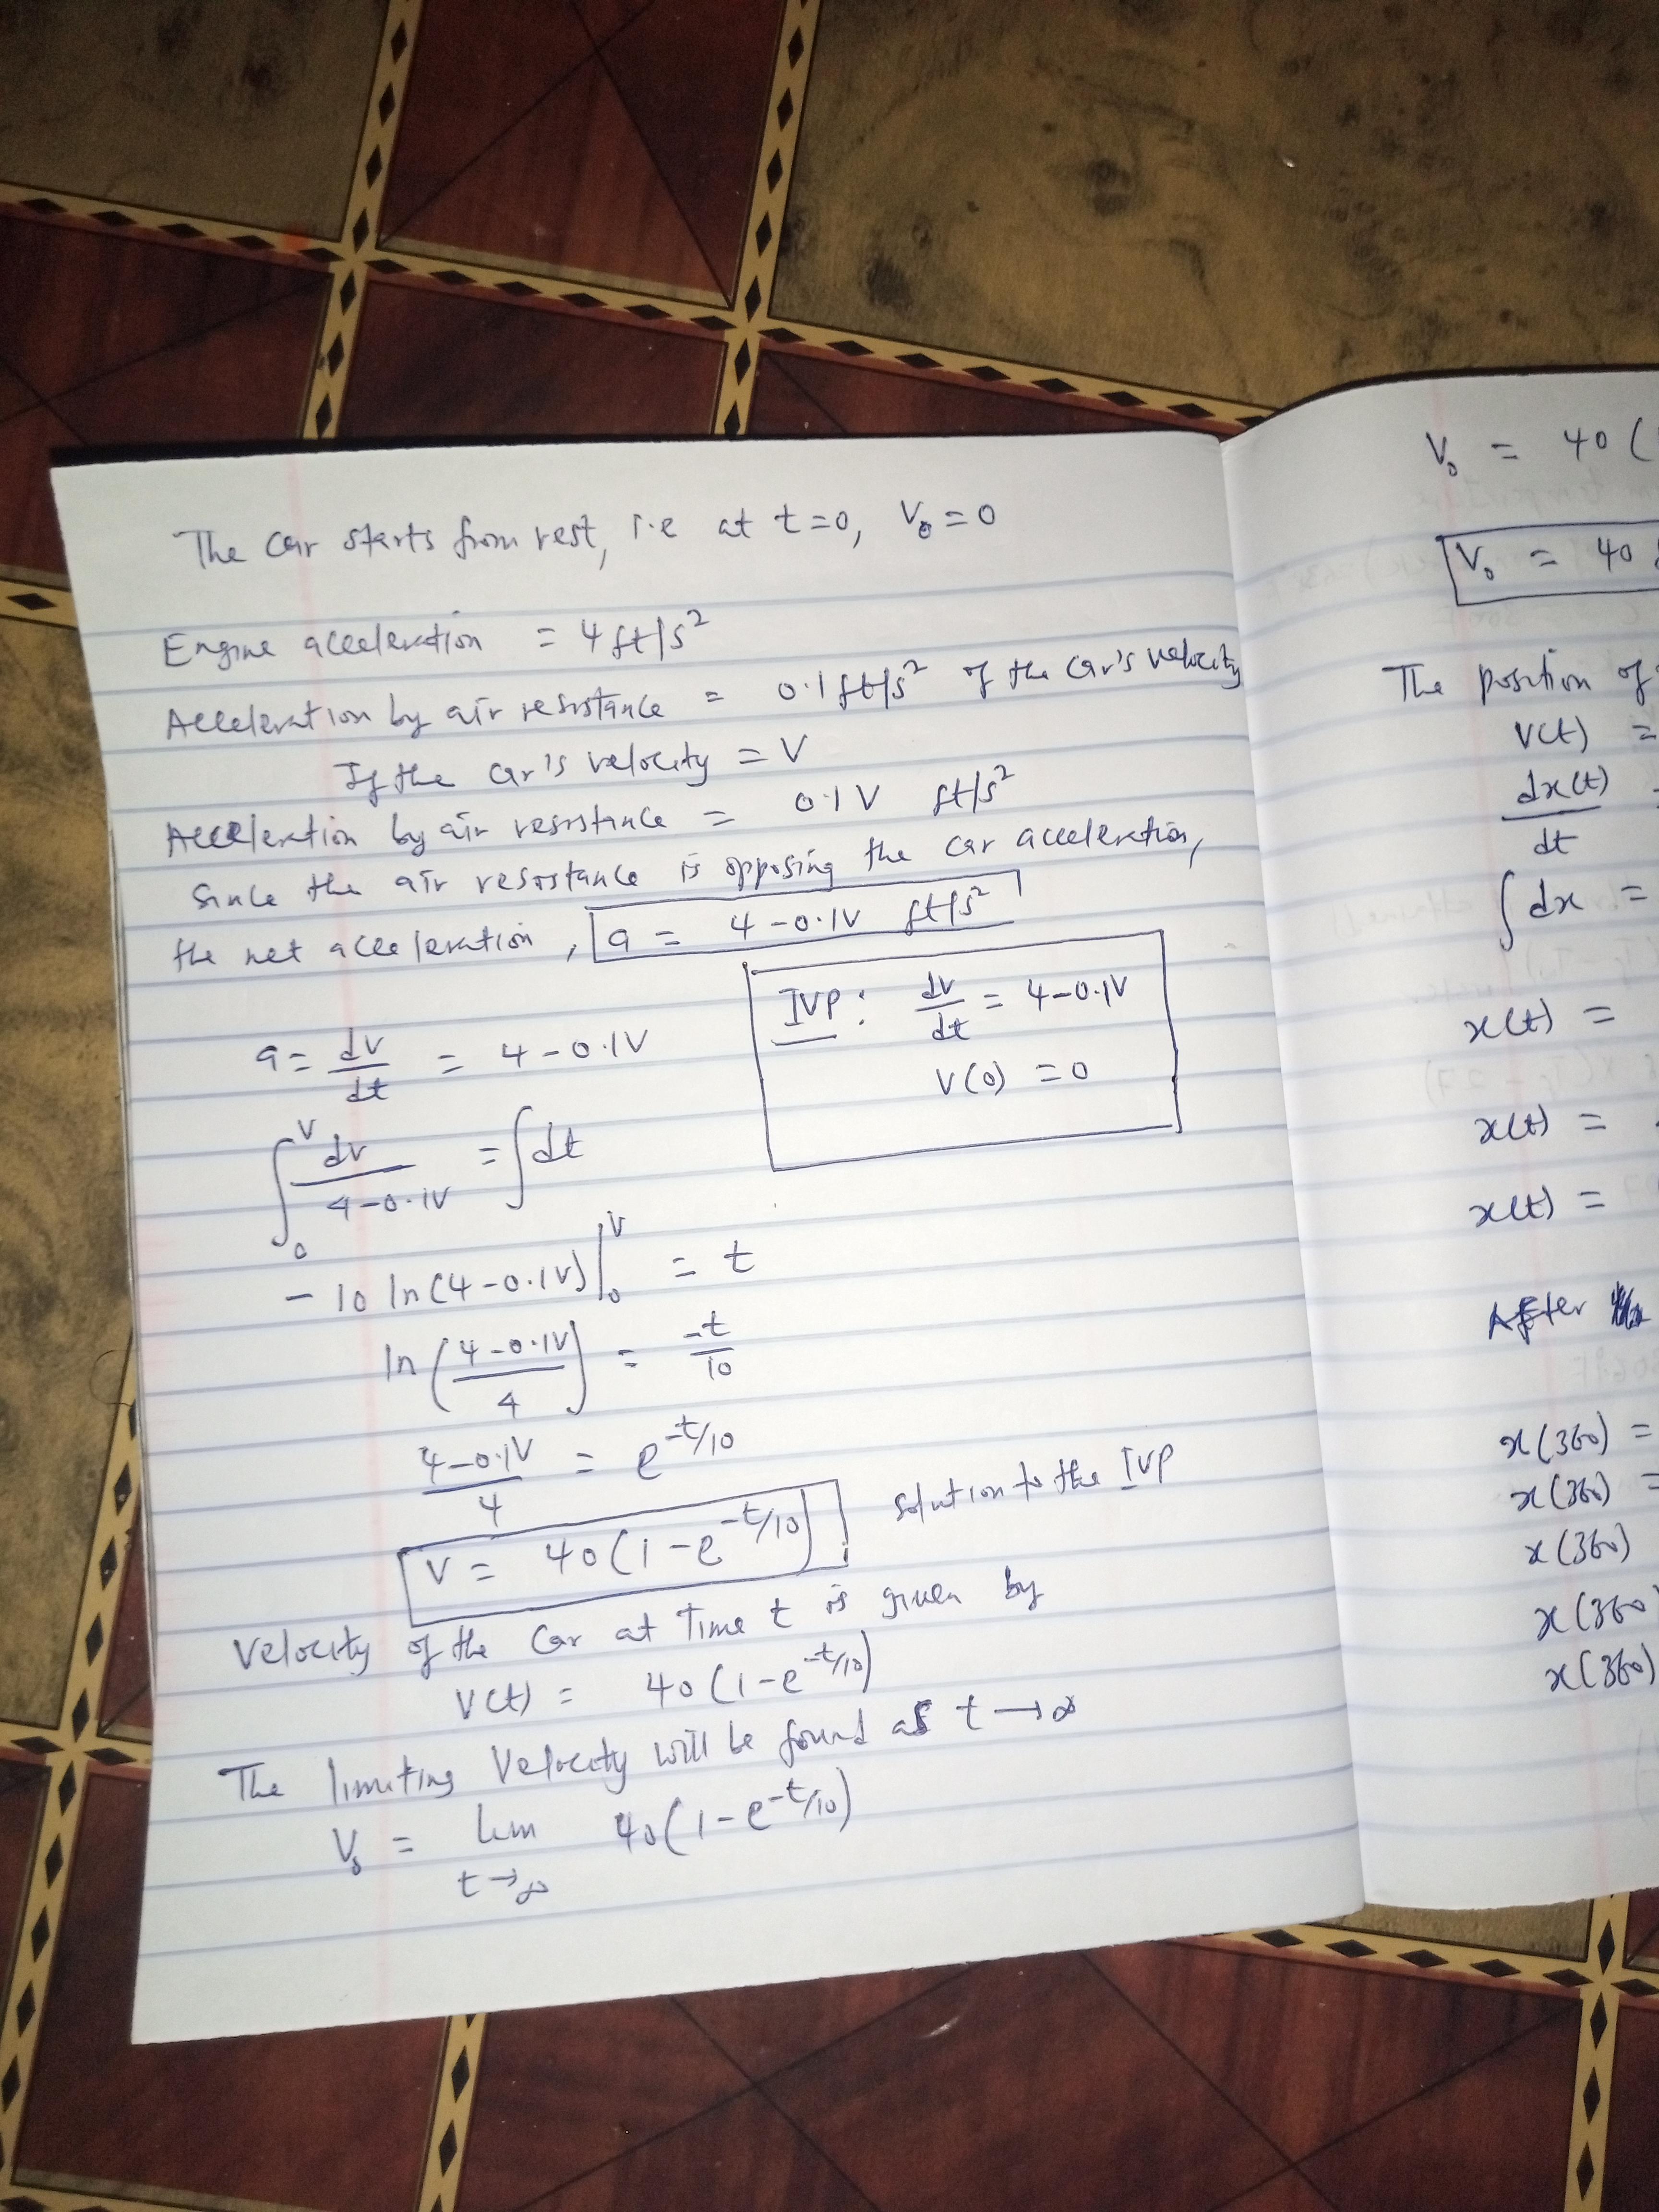 The car starts from rest, i.e at t=0, V₀ = 0
Engine acceleration = 4 ft/s²
Acceleration by air resistance = 0.1 ft/s² of the car's velocity
If the car's velocity = V
Acceleration by air resistance = 0.1V ft/s²
Since the air resistance is opposing the car acceleration,
the net acceleration, a = 4 - 0.1V ft/s²
IVP: dv/dt = 4-0.1V
V(0) = 0
a = dv/dt = 4 - 0.1V
∫₀^V dv/(4-0.1V) = ∫dt
-10 ln(4-0.1V)|₀^V = t
ln((4-0.1V)/4) = -t/10
(4-0.1V)/4 = e^(-t/10)
V = 40(1-e^(-t/10)) solution to the IVP
Velocity of the car at Time t is given by
V(t) = 40(1-e^(-t/10))
The limiting Velocity will be found as t→∞
V₀ = lim t→∞ 40(1-e^(-t/10))
V₀ = 40 (
V₀ = 40
The position of
V(t) =
dx(t)/dt
∫dx =
x(t) =
x(t) =
x(t) =
After
x(360) =
x(360) =
x(360)
x(360
x(360)